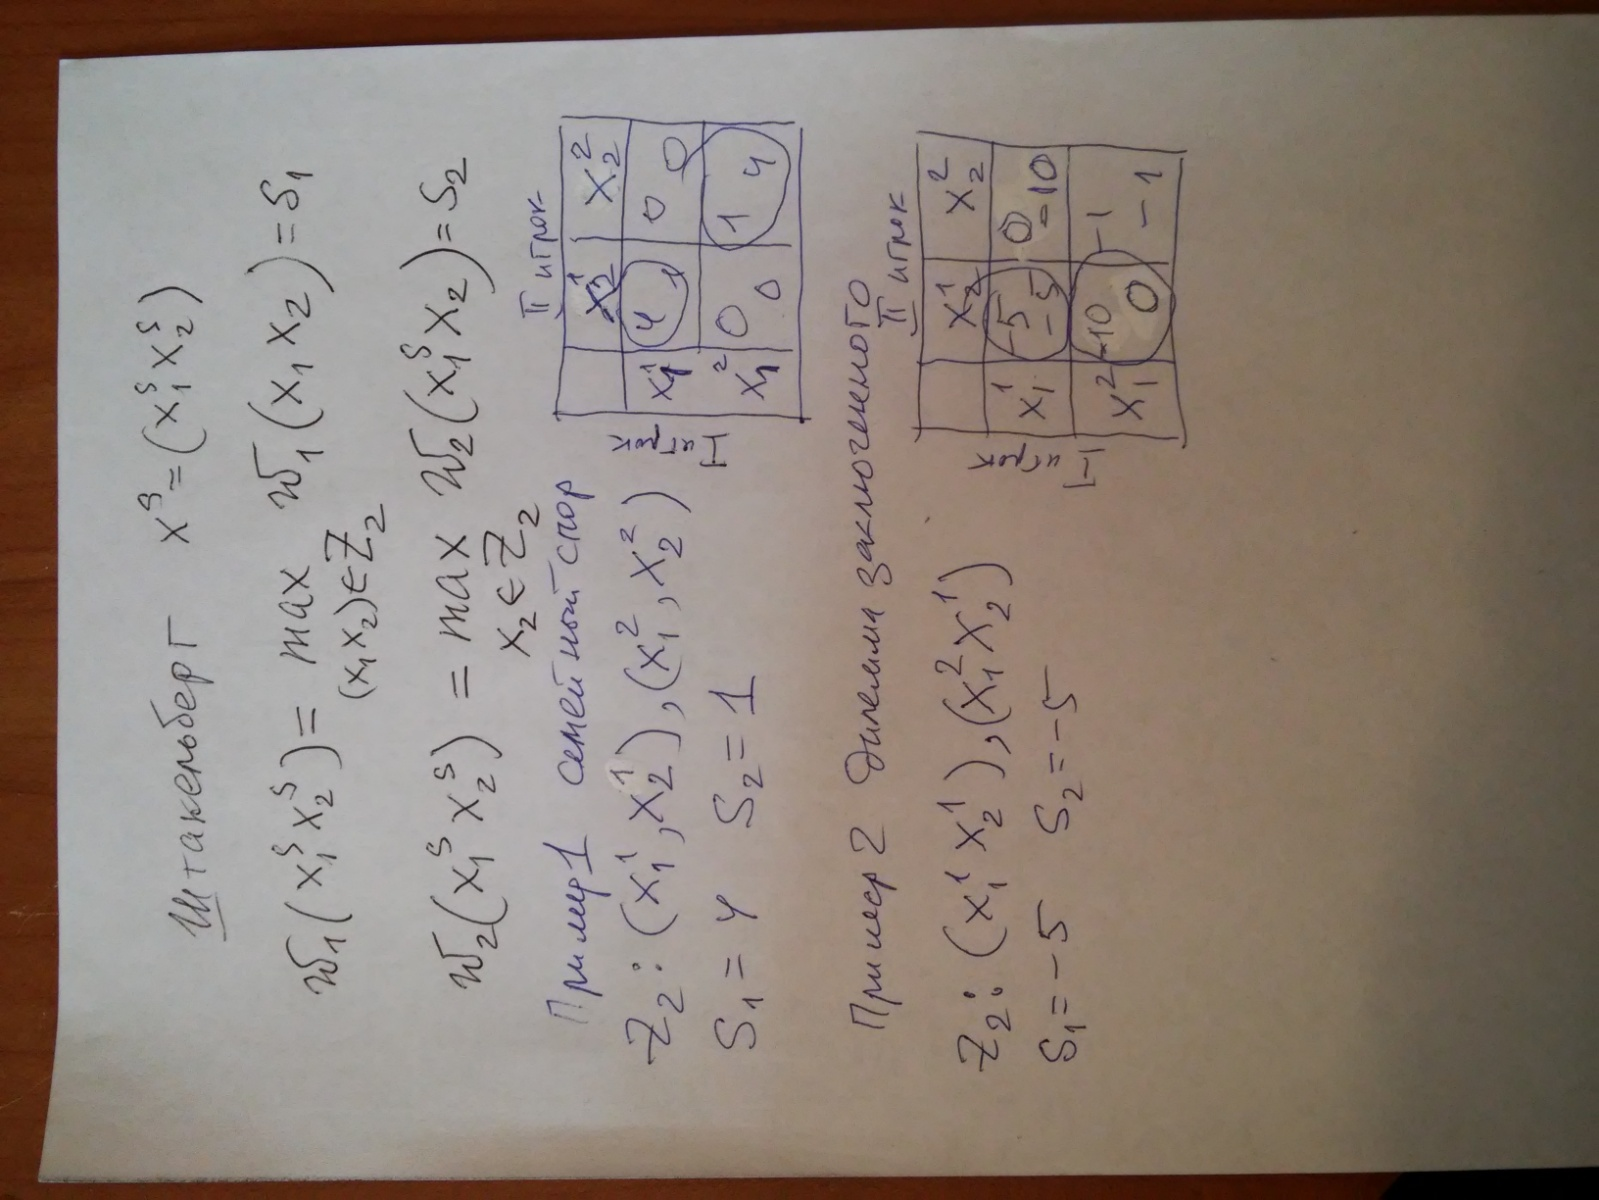 Штакельберг x^S = (x_1^S x_2^S)
W_1(x_1^S x_2^S) = max W_1(x_1 x_2) = S_1
(x_1 x_2) ∈ Z_2
W_2(x_1^S x_2^S) = max W_2(x_1^S x_2) = S_2
x_2 ∈ Z_2
Пример 1 семейный спор
Z_2: (x_1^1, x_2^1), (x_1^2, x_2^2)
S_1 = 4 S_2 = 1
II игрок
I игрок
x_2^1 x_2^2
x_1^1 4 1 0 0
x_1^2 0 0 1 4
Пример 2 дилемма заключенного
Z_2: (x_1^1 x_2^1), (x_1^2 x_2^1)
S_1 = -5 S_2 = -5
II игрок
I игрок
x_2^1 x_2^2
x_1^1 -5 -5 0 -10
x_1^2 -10 0 -1 -1